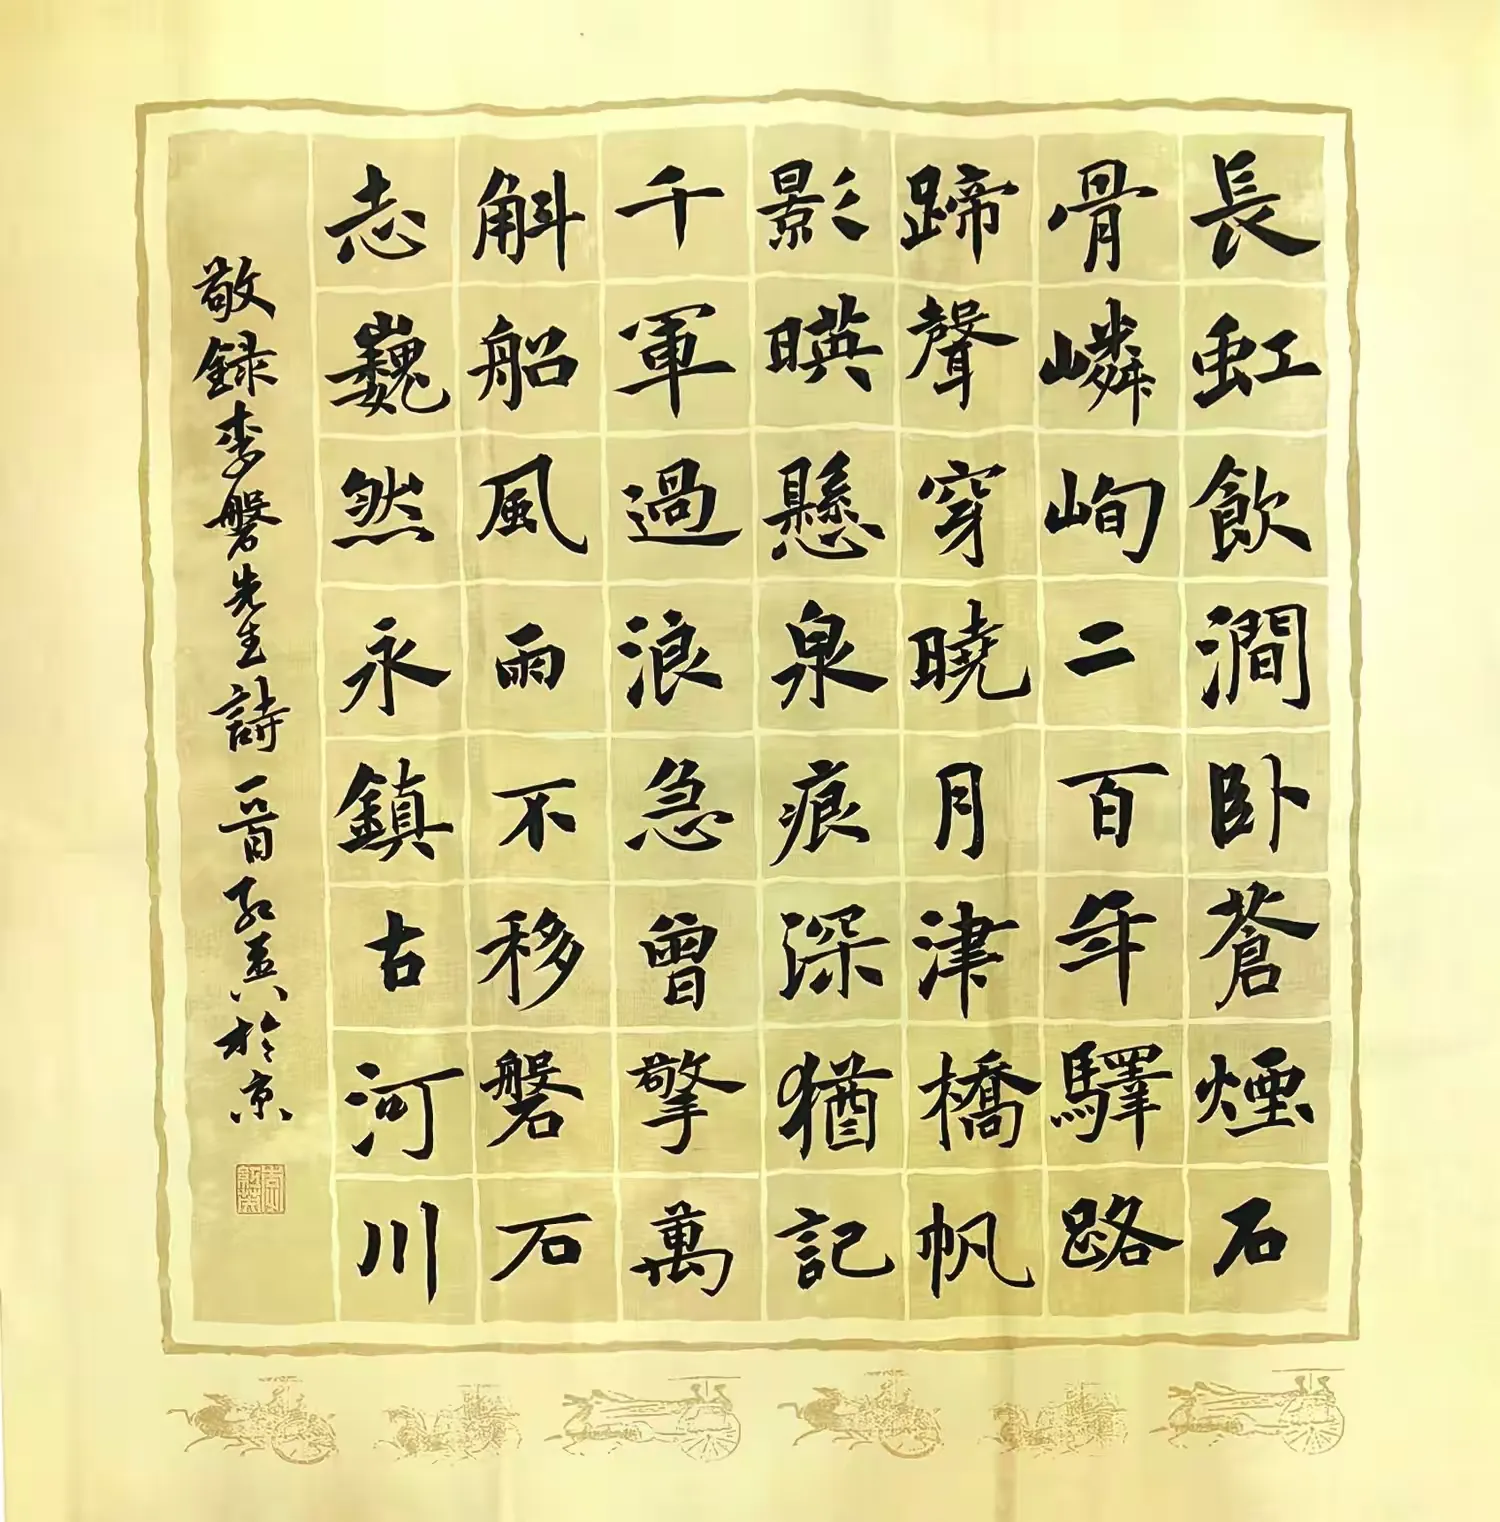 長虹飲澗卧蒼煙石
骨嶙峋二百年驛路
蹄聲穿曉月津橋帆
影暎懸泉痕深猶記
千軍過浪急曾擎萬
斛船風雨不移磐石
志巍然永鎮古河川
敬録李磐先生詩一首 於京